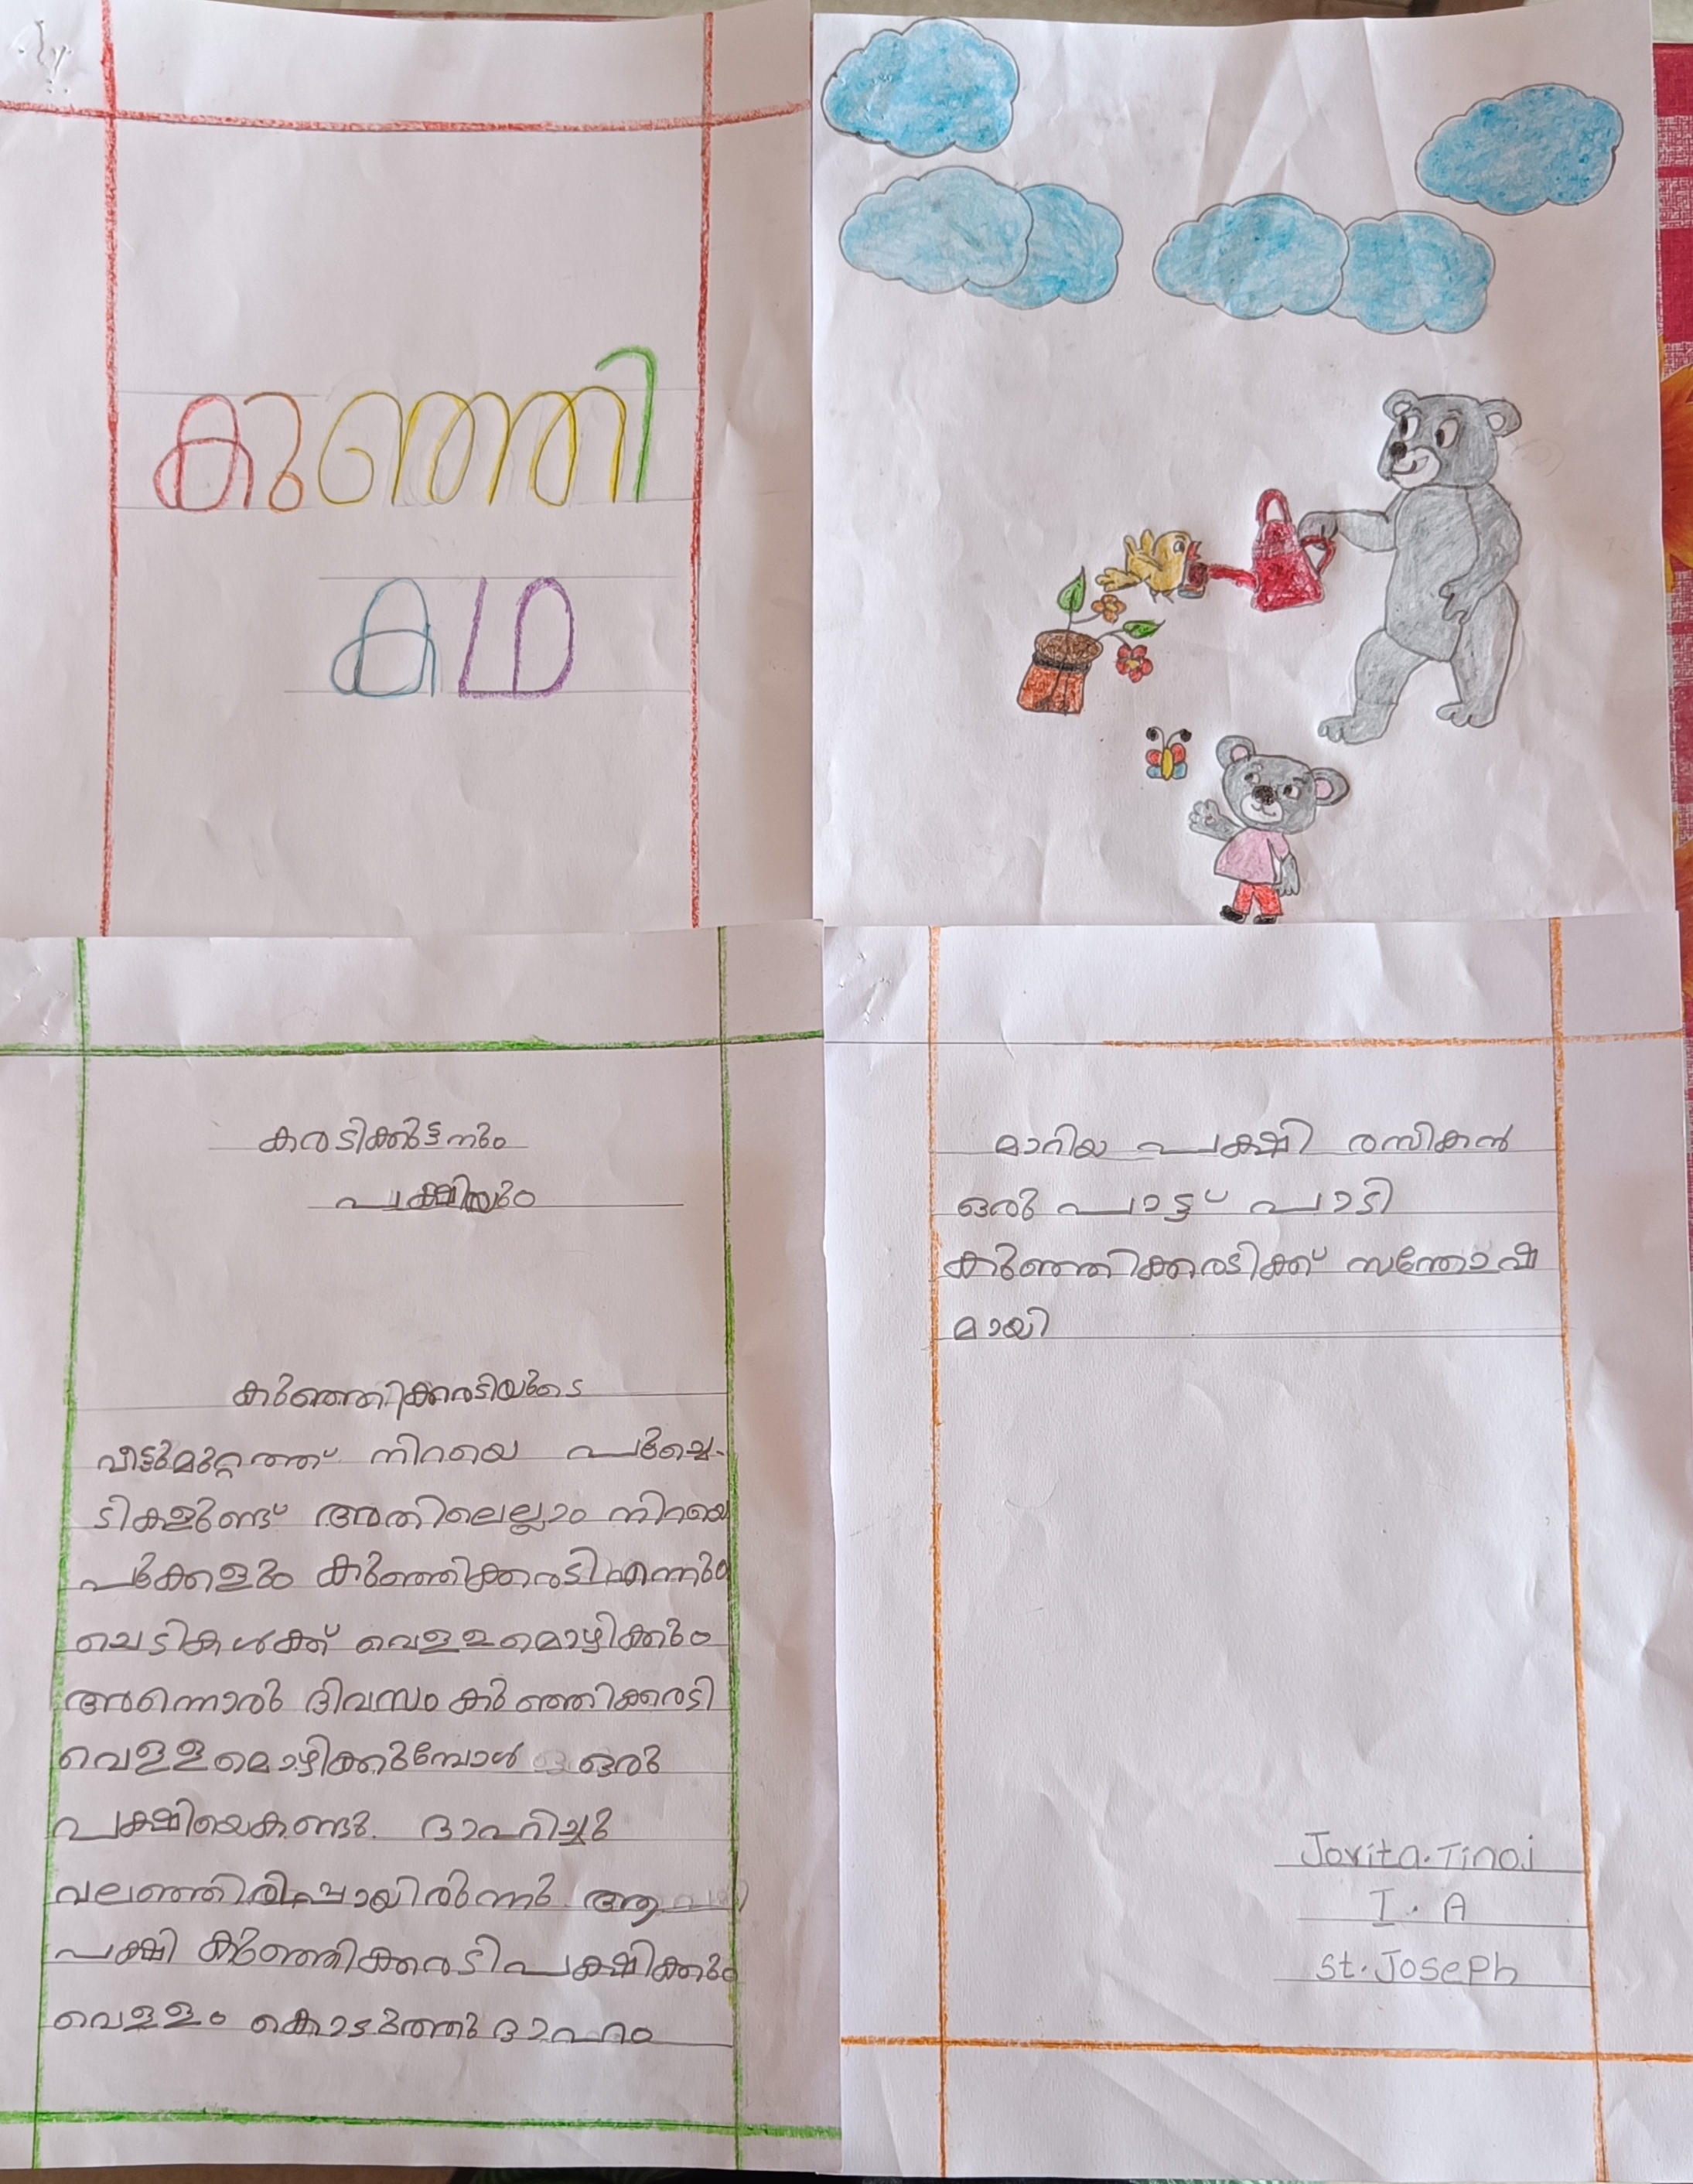 കുഞ്ഞി
കഥ
കരടിക്കുട്ടനും
പക്ഷിയും
കുഞ്ഞിക്കരടിയുടെ
വീട്ടുമുറ്റത്ത് നിറയെ പൂച്ചെ-
ടികളുണ്ട് അതിലെല്ലാം നിറയെ
പൂക്കളും കുഞ്ഞിക്കരടി എന്നും
ചെടികൾക്ക് വെളളമൊഴിക്കും
അന്നൊരു ദിവസം കുഞ്ഞിക്കരടി
വെളളമൊഴിക്കുമ്പോൾ ഒരു
പക്ഷിയെകണ്ടു. ദാഹിച്ചു
വലഞ്ഞിരിപ്പായിരുന്നു. ആ
പക്ഷി കുഞ്ഞിക്കരടി പക്ഷിക്കും
വെളളം കൊടുത്തു ദാഹം
മാറിയ പക്ഷി രസികൻ
ഒരു പാട്ട് പാടി
കുഞ്ഞിക്കരടിക്ക് സന്തോഷ
മായി
Jovita.Tinoj
I. A
St. Joseph